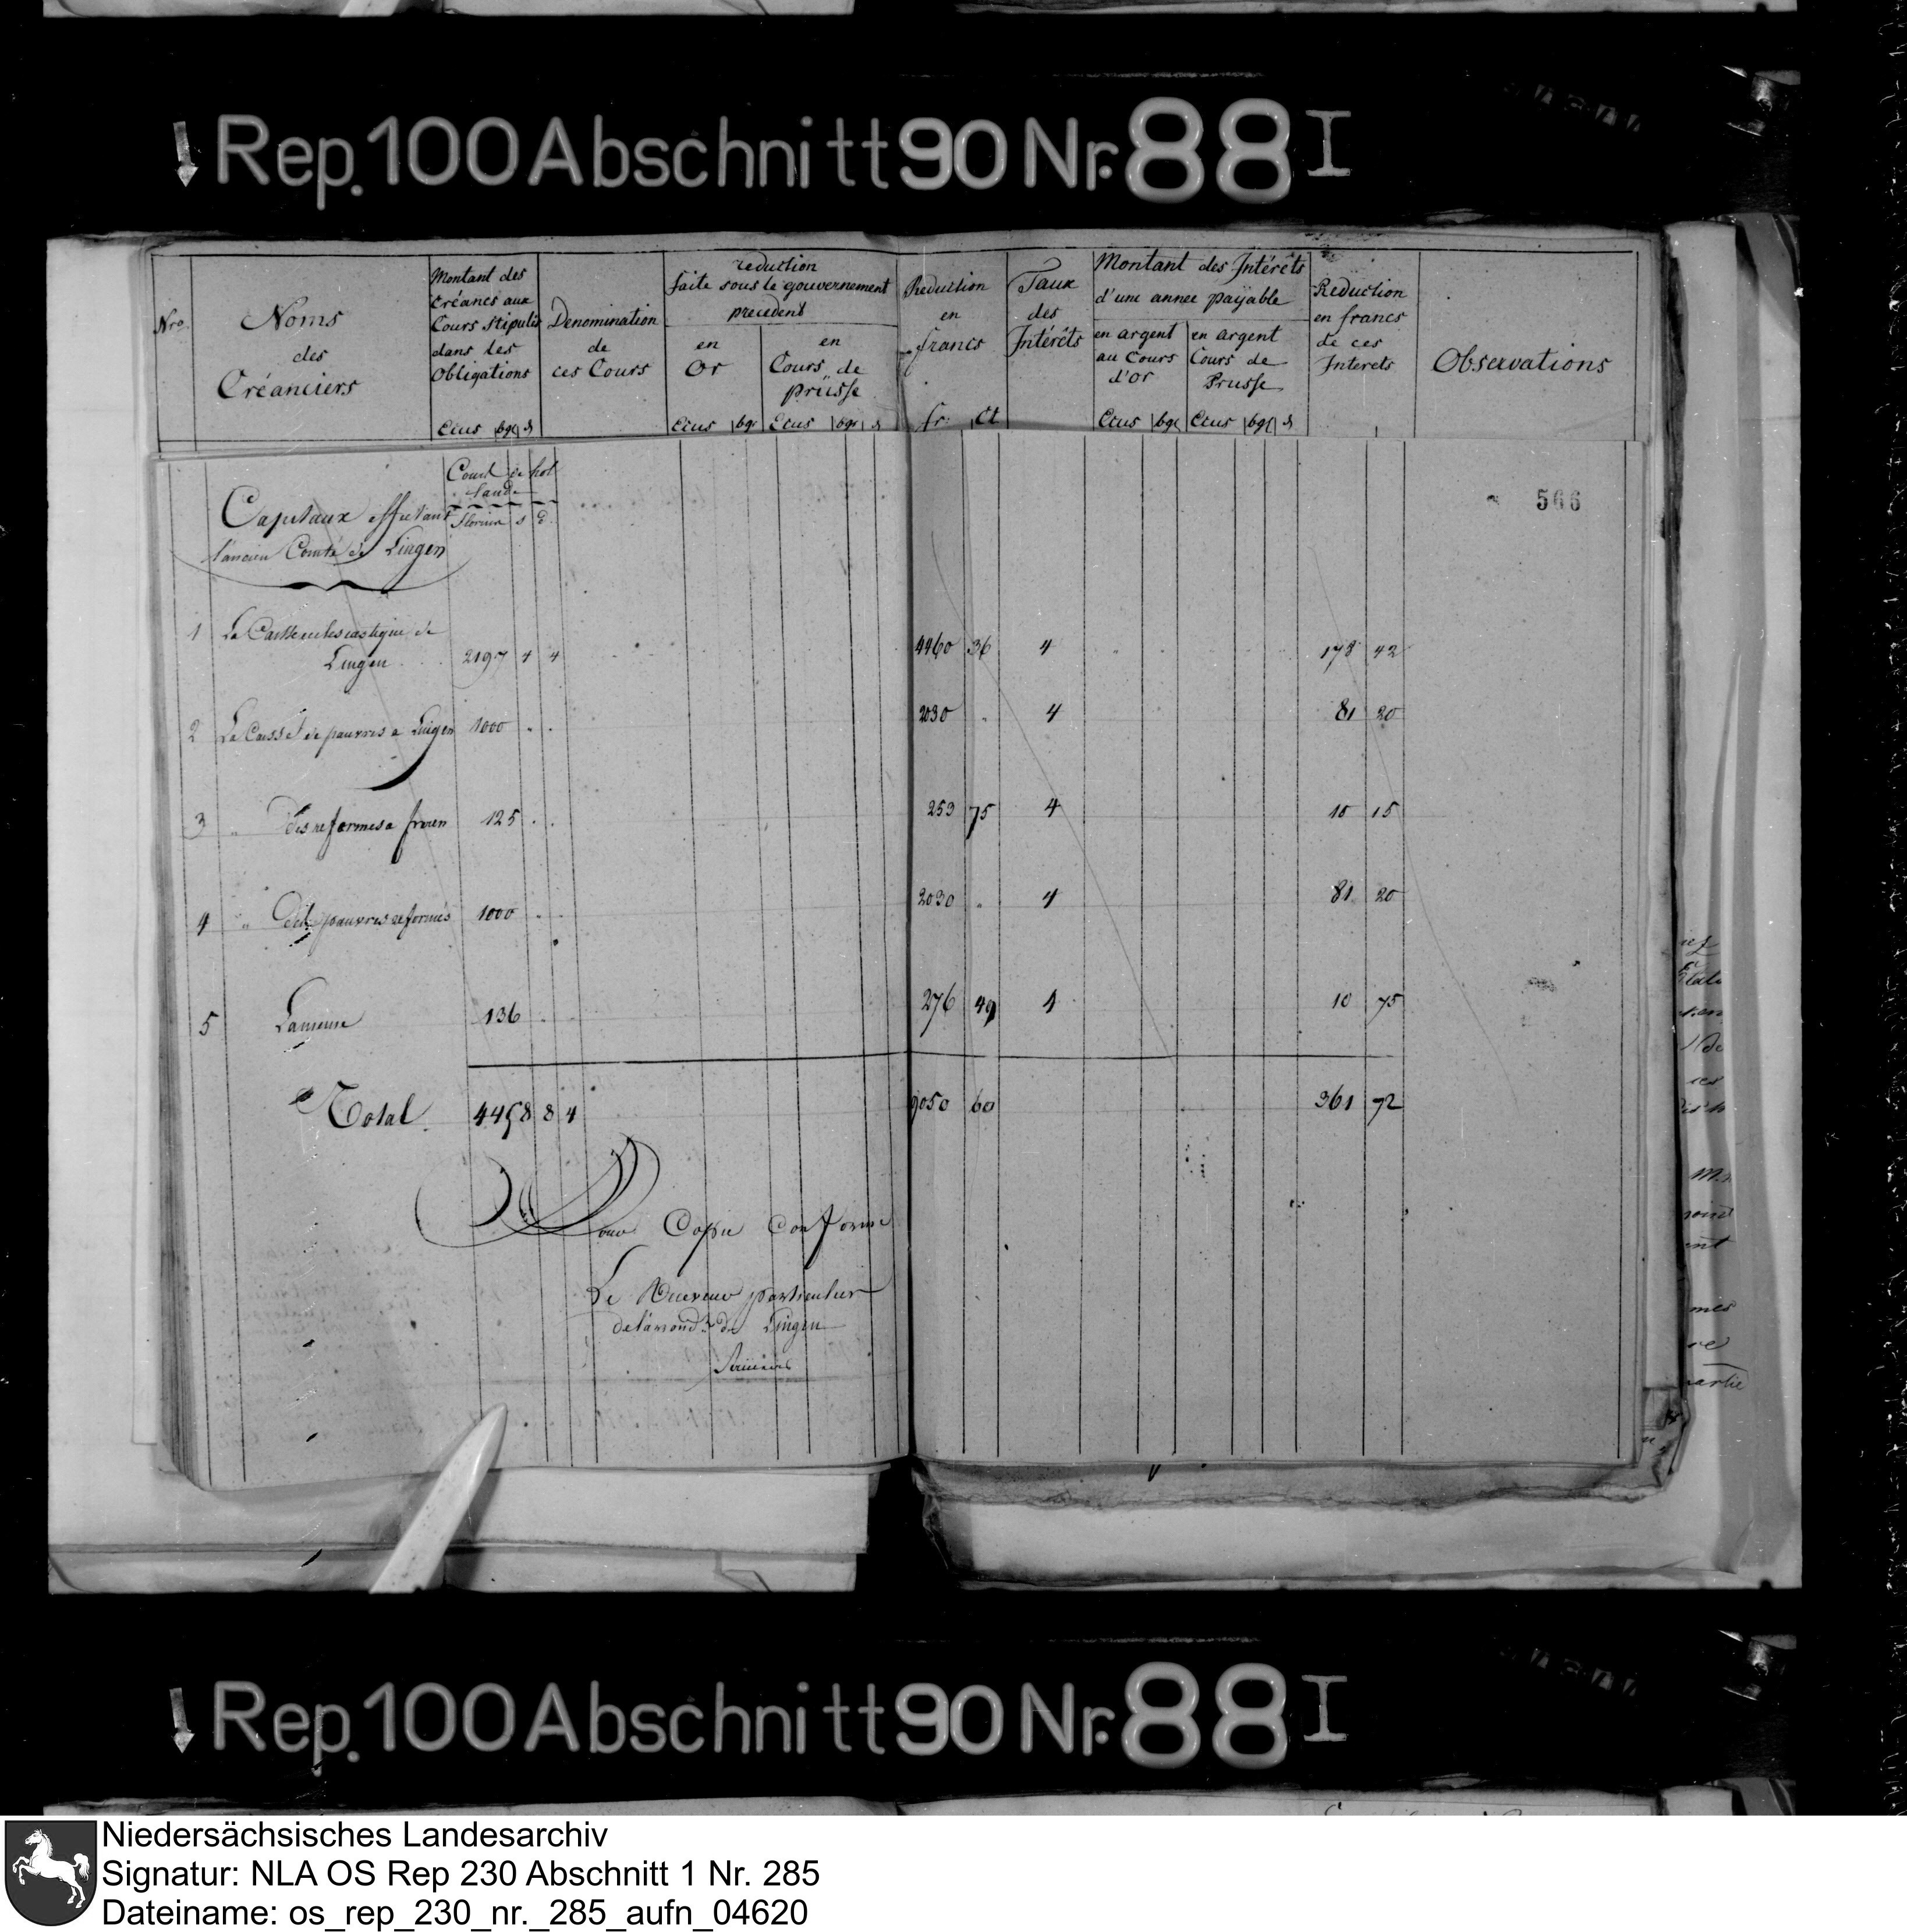 Rep. 100 Abschnitt 90 Nr. 88 I
Nro.
Noms
des
Créanciers
Montant des
Créances aux
Cours stipulés
dans les
Obligations
Ecus bgl d
Denomination
de
ces Cours
reduction
faite sous le gouvernement
precedent
en
Or
Ecus bgr
en
Cours de
prüsse
Ecus bgr d
Reduction
en
francs
fr. Ct
Taux
des
Intérêts
Montant des Intérêts
d'une annee payable
en argent
au Cours
d'or
Ecus bgl
en argent
Cours de
Prusse
Ecus bgl d
Reduction
en francs
de ces
Interets
Observations
Court de hol
lande
florins s d
Capitaux affectant
l'ancien Comté de Lingen
566
1 La Caisse eclesiastique de
Lingen 2197 4 4 4460 36 4 178 42
2 La Caisse de pauvres a Lingen 1000 . . 2030 " 4 81 20
3 " des reformes a freren 125 . . 253 75 4 10 15
4 " des pauvres reformés 1000 . . 2030 " 4 81 20
5 136 . 276 49 4 10 75
Total 4458 8 4 9050 60 361 72
Pour Copie Conforme
Le Receveur particulier
de l'arrond. de Lingen
Rep. 100 Abschnitt 90 Nr. 88 I
Niedersächsisches Landesarchiv
Signatur: NLA OS Rep 230 Abschnitt 1 Nr. 285
Dateiname: os_rep_230_nr._285_aufn_04620